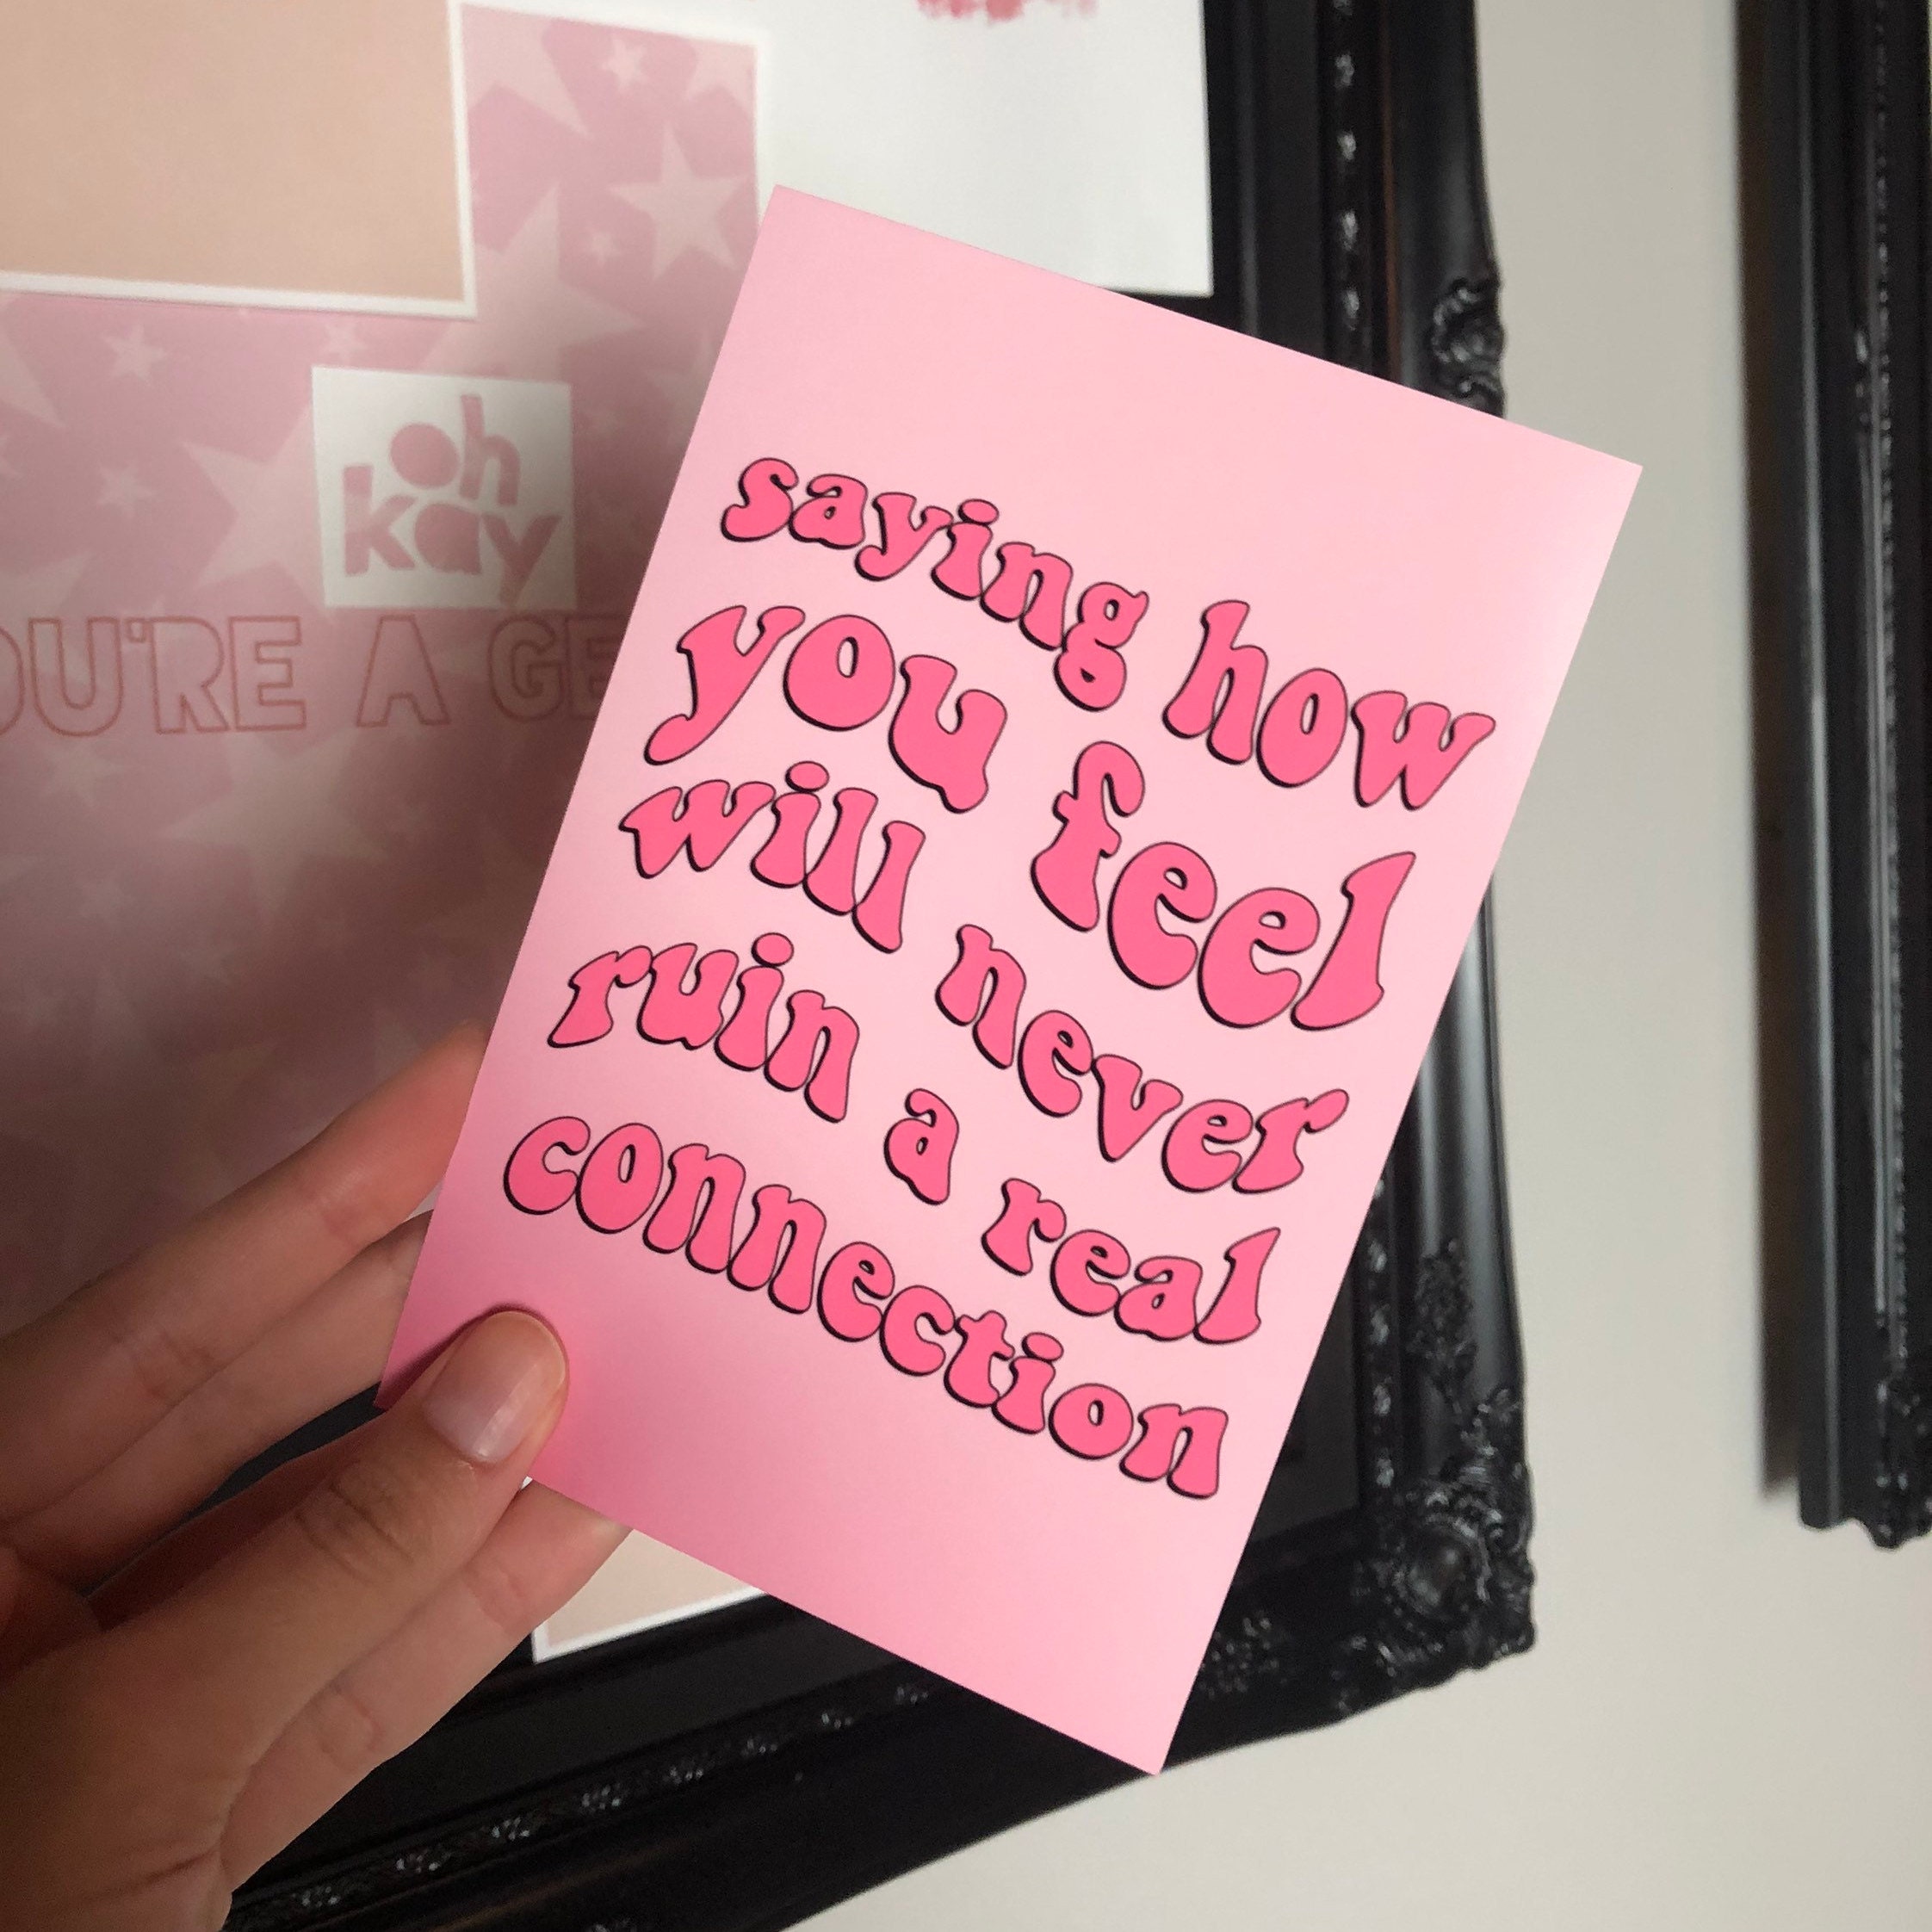 oh
kay
YOU'RE A GE
saying how
you feel
will never
ruin a real
connection